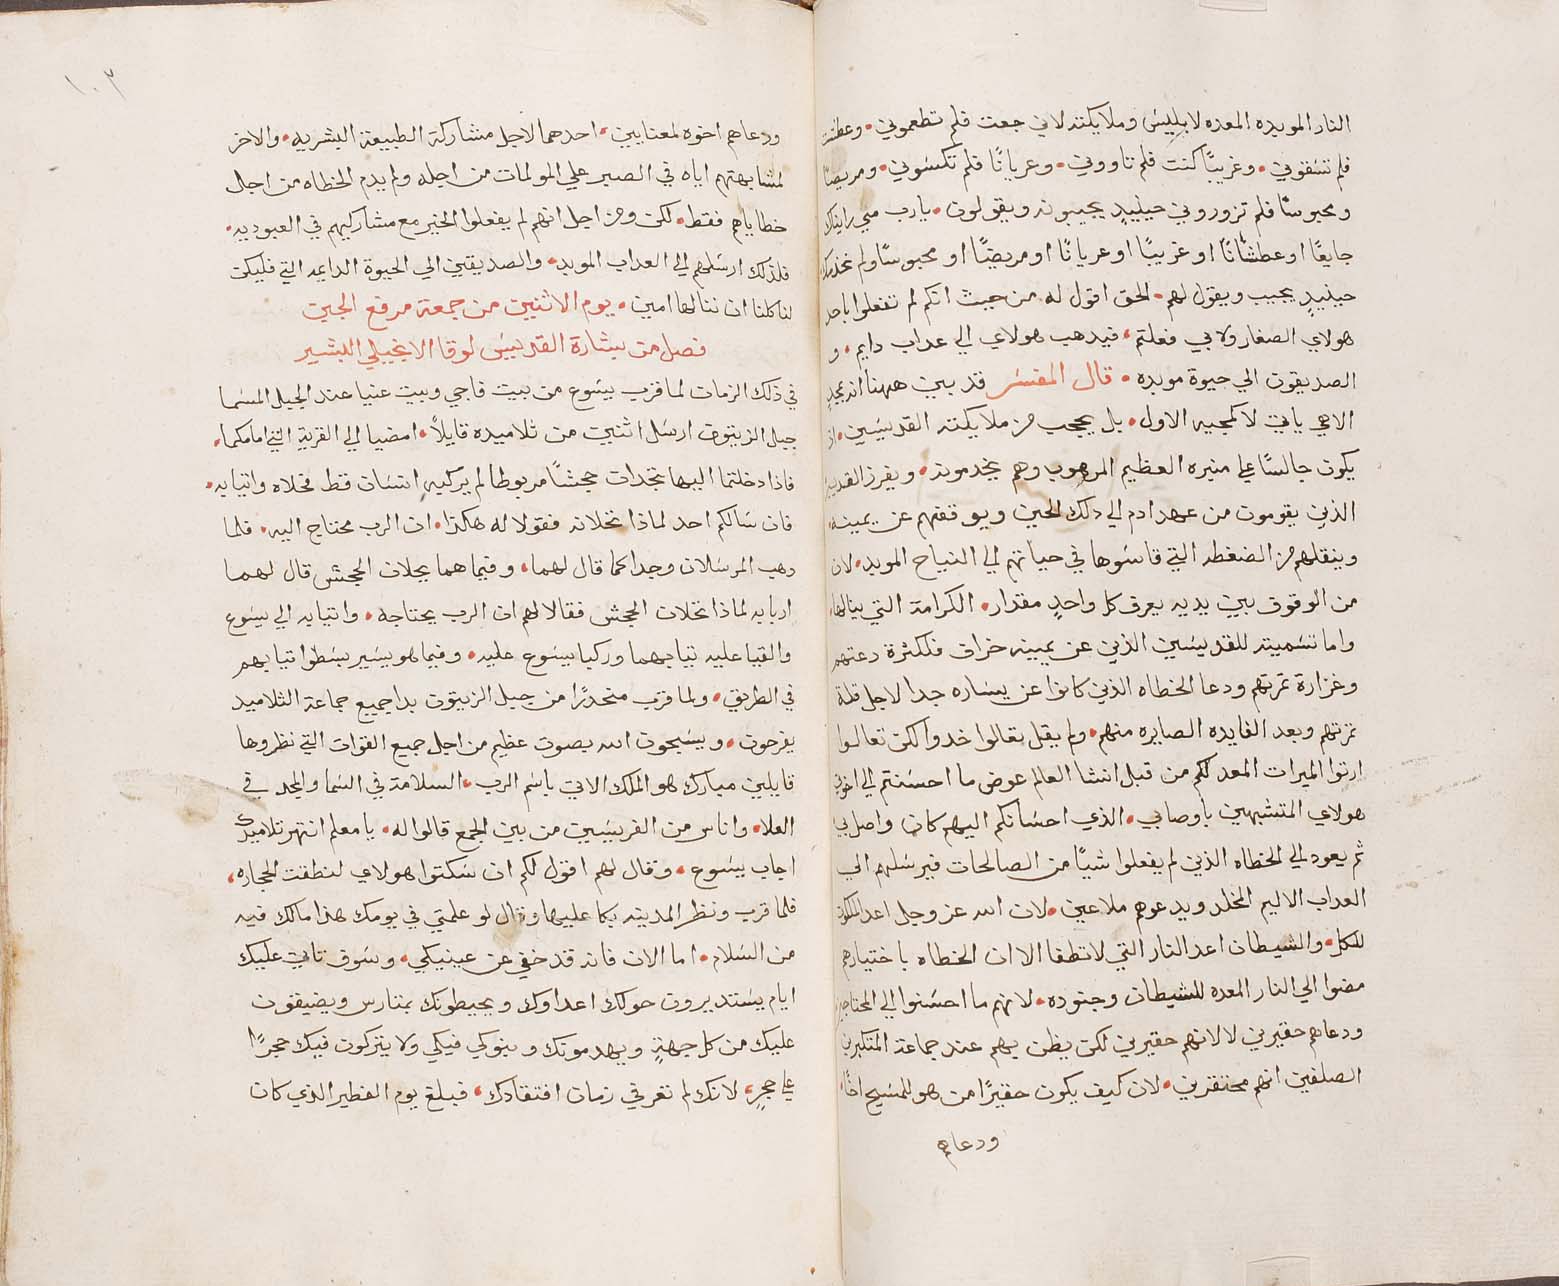 النار الموبده المعده لابليس وملايكته لاني جعت فلم تطعموني • وعطشت
فلم تسقوني • وغريبًا كنت فلم تاووني • وعريانًا فلم تكسوني • ومريضًا
ومحبوسًا فلم تزوروني حينيدٍ يجيبونه ويقولون • يارب متي رايناك
جايعًا او عطشانًا او غريبًا او عريانًا او مريضًا او محبوسًا ولم نخدمك
حينيدٍ يجيب ويقول لهم • الحق اقول لكم من حيث انكم لم تفعلوا باحد
هولاي الصغار ولا بي فعلتم • فيدهب هولاي الي عداب دايم • و
الصديقون الي حيوة موبده • قال المفسر قد بين ههنا انه بمجدٍ
الاهي ياتي لا كمجيه الاول • بل بعجب من ملايكته القديسين • ان
يكون جالسًا علي منبره العظيم المرهوب وهم يخدمونه • ويفرز القديسين
الذين يقومون من عهد ادم الي دلك الحين ويوقفهم عن يمينه
وينقلهم من الضغطه التي قاسوها في حياتهم الي النياح الموبد • لان
من الوقوف بين يديه يعرف كل واحدٍ مقدار • الكرامة التي ينالها
واما تسميته للقديسين الذين عن يمينه خراف فلكثرة دعتهم
وغزارة ثمرتهم ودعا الخطاه الذين كانوا عن يساره جدا لاجل قلة
ثمرتهم وبعد الفايده الصايره منهم • ولم يقل تعالوا خدوا لكن تعالوا
ارثوا الميرات المعد لكم من قبل انشا العالم عوض ما احسنتم الي اخوتي
هولاي المتشبهين باوصابي • الذي احسانكم اليهم كان واصل بي
ثم يعود الي الخطاه الذين لم يفعلوا شيًا من الصالحات فيرسلهم الي
العداب الاليم المخلد ويدعوهم ملاعين • لان الله عز وجل اعد الملكوت
للكل • والشيطان اعد النار التي لا تطفا الا ان الخطاه باختيارهم
مضوا الي النار المعده للشيطان وجنوده • لانهم ما احسنوا الي المحتاجين
ودعاهم حقيرين لا لانهم حقيرين لكن يظن بهم عند جماعة المتكبرين
الصلفين انهم محتقرين • لان كيف يكون حقيرًا من هو للمسيح اخًا •
ودعاهم
١٠٢
ودعاهم اخوه لمعنايين • احدهما لاجل مشاركة الطبيعة البشريه • والاخر
لمشابهتهم اياه في الصبر علي المولمات من اجله ولم يدم الخطاه من اجل
خطاياهم فقط • لكن ومن اجل انهم لم يفعلوا الخير مع مشاركيهم في العبوديه •
فلذلك ارسلهم الي العداب الموبد • والصديقين الي الحيوة الدايمه التي فليكن
لنا كلنا ان ننالها امين • يوم الاثنين من جمعة مرفع الجبن
فصل من بشارة القديس لوقا الانجيلي البشير
في ذلك الزمان لما قرب يسوع من بيت فاجي وبيت عنيا عند الجبل المسما
جبل الزيتون ارسل اثنين من تلاميده قايلًا • امضيا الي القرية التي امامكما •
فاذا دخلتما اليها تجدان جحشًا مربوطا لم يركبه انسان قط فحلاه واتيا به •
فان سالكم احد لماذا تحلانه فقولا له هكذا • ان الرب محتاج اليه • فلما
دهب المرسلان وجدا كما قال لهما • وفيما هما يحلان الجحش قال لهما
اربابه لماذا تحلان الجحش فقالا لهم ان الرب يحتاجه • واتيا به الي يسوع
والقيا عليه ثيابهما وركبا يسوع عليه • وفيما هو يسير بسطوا تيابهم
في الطريق • ولما قرب منحدرًا من جبل الزيتون بدا جميع جماعة التلاميد
يفرحون • ويسبحون الله بصوت عظيم من اجل جميع القوات التي نظروها
قايلين مبارك هو الملك الاتي باسم الرب • السلامة في السما والمجد في
العلا • واناس من الفريسيين من بين الجمع قالوا له • يا معلم انتهر تلاميدك
اجاب يسوع • وقال لهم اقول لكم ان سكتوا هولاي لنطقت الحجاره •
فلما قرب ونظر المدينه بكا عليها وقال لو علمتي في يومك هذا ما لك فيه
من السلام • اما الان فانه قد خفي عن عينيكي • وسوف تاتي عليك
ايام يستديرون حولك اعداوك ويحيطونك بمتارس ويضيقون
عليك من كل جهةٍ ويهدمونك وبنوكي فيكي ولا يتركون فيك حجرًا
علي حجرٍ • لانك لم تعرفي زمان افتقادك • فبلغ يوم الفطير الذي كان